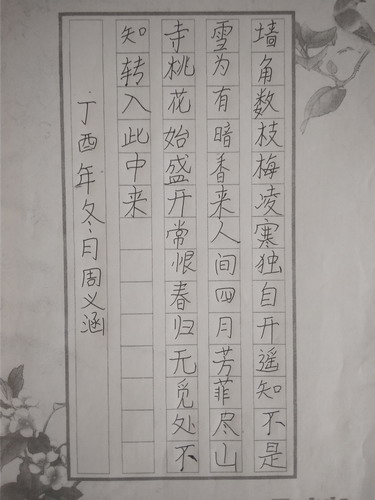 墙角数枝梅凌寒独自开遥知不是
雪为有暗香来人间四月芳菲尽山
寺桃花始盛开常恨春归无觅处不
知转入此中来
丁酉年冬月周义涵